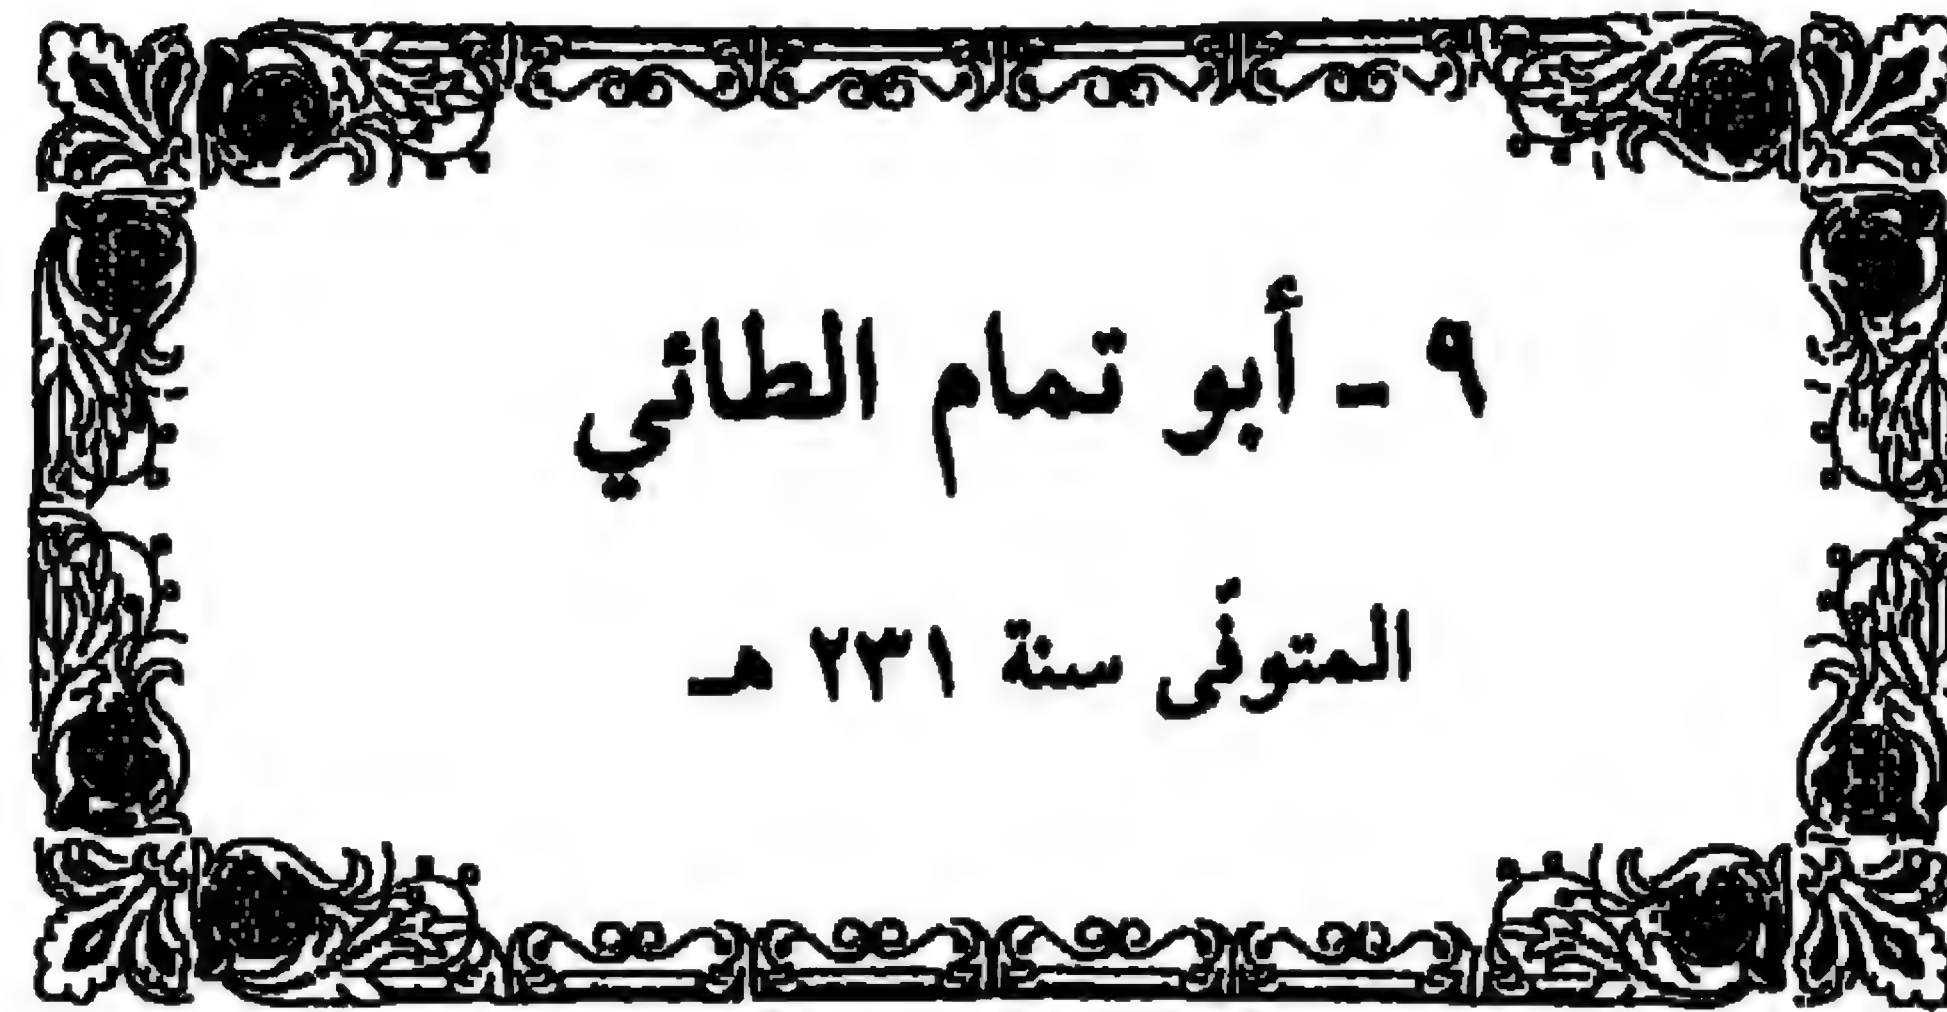 ٩ ـ أبو تمام الطائي
المتوفّى سنة ٢٣١ هـ